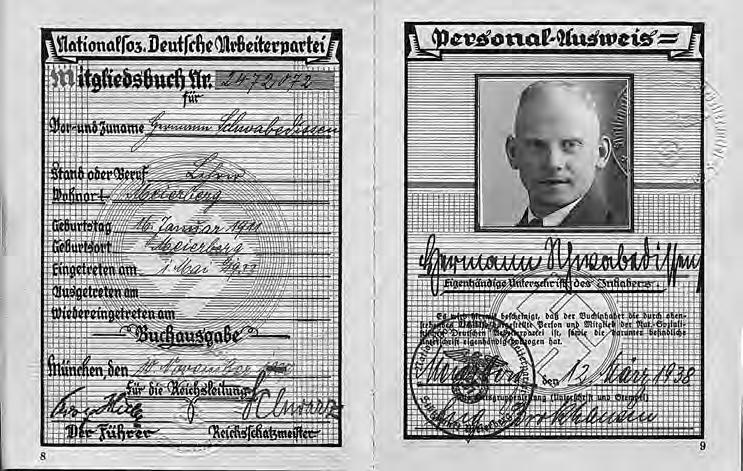 Nationalsoz. Deutsche Arbeiterpartei
Mitgliedsbuch Nr. 2472072
für
Vor- und Zuname Hermann Schwabedissen
Stand oder Beruf Lehrer
Wohnort Meierberg
Geburtstag 16. Januar 1911
Geburtsort Meierberg
Eingetreten am 1. Mai
Ausgetreten am
Wiedereingetreten am
Buchausgabe
München, den 10. November
Für die Reichsleitung
Schwarz
Der Führer Reichsschatzmeister
8
Personal-Ausweis
Hermann Schwabedissen
Eigenhändige Unterschrift des Inhabers
Es wird hiermit bescheinigt, daß der Buchinhaber die durch oben-
stehendes Lichtbild dargestellte Person und Mitglied der Nat.-Soziali-
stischen Deutschen Arbeiterpartei ist, sowie die darunter befindliche
Unterschrift eigenhändig vollzogen hat.
den 12. März 1938
(Unterschrift und Stempel)
9